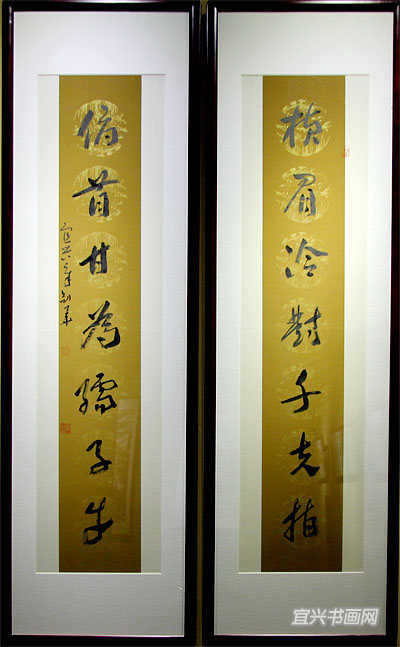 横眉冷對千夫指
俯首甘為孺子牛
宜兴书画网